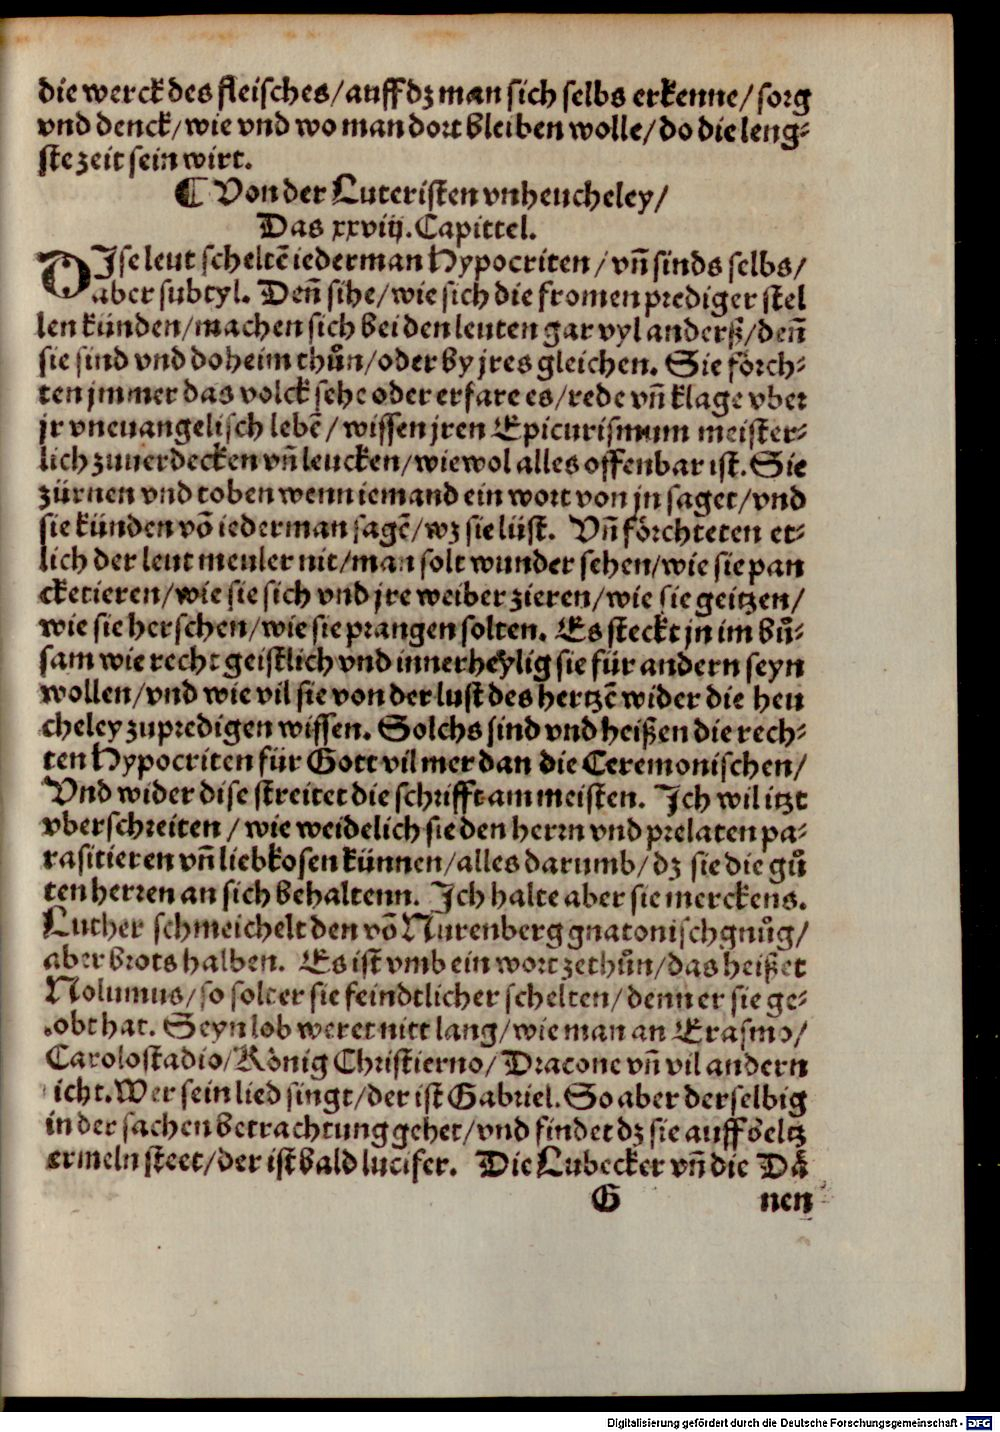 die werck des fleisches/auff dz man sich selbs erkenne/sorg
vnd denck/wie vnd wo man dort bleiben wolle/do die leng⸗
ste zeit sein wirt.
¶ Von der Luteristen vnheucheley/
Das xxviij. Capittel.
DIse leut scheltē iederman Hypocriten/vñ sinds selbs/
aber subtyl. Deñ sihe/wie sich die fromen prediger stel
len künden/machen sich bei den leuten gar vyl anderß/deñ
sie sind vnd doheim thůn/oder by jres gleichen. Sie förch⸗
ten jmmer das volck sehe oder erfare es/rede vñ klage vber
jr vneuangelisch lebē/wissen jren Epicurismum meister⸗
lich zuuerdecken vñ leucken/wiewol alles offenbar ist. Sie
zürnen vnd toben wenn iemand ein wort von jn saget/vnd
sie künden võ iederman sagē/wz sie lüst. Vñ förchteten et⸗
lich der leut meuler nit/man solt wunder sehen/wie sie pan
cketieren/wie sie sich vnd jre weiber zieren/wie sie geitzen/
wie sie herschen/wie sie prangen solten. Es steckt jn im bů⸗
sam wie recht geistlich vnd innerheylig sie für andern seyn
wollen/vnd wie vil sie von der lust des hertzē wider die heu
cheley zupredigen wissen. Solchs sind vnd heißen die rech⸗
ten Hypocriten für Gott vil mer dan die Ceremonischen/
Vnd wider dise streitet die schrifft am meisten. Ich wil itzt
vberschreiten/wie weidelich sie den herrn vnd prelaten pa⸗
rasitieren vñ liebkosen künnen/alles darumb/dz sie die gů
ten herren an sich behaltenn. Ich halte aber sie merckens.
Luther schmeichelt den võ Nurenberg gnatonisch gnůg/
aber brots halben. Es ist vmb ein wort zethůn/das heißet
Nolumus/so solt er sie feindtlicher schelten/denn er sie ge⸗
obt hat. Seyn lob weret nitt lang/wie man an Erasmo/
Carolostadio/König Christierno/Dracone vñ vil andern
icht. Wer sein lied singt/der ist Gabriel. So aber derselbig
in der sachen betrachtung gehet/vnd findet dz sie auff beltz
ermeln steet/der ist bald lucifer. Die Lubecker vñ die Dä
G nen
Digitalisierung gefördert durch die Deutsche Forschungsgemeinschaft - DFG